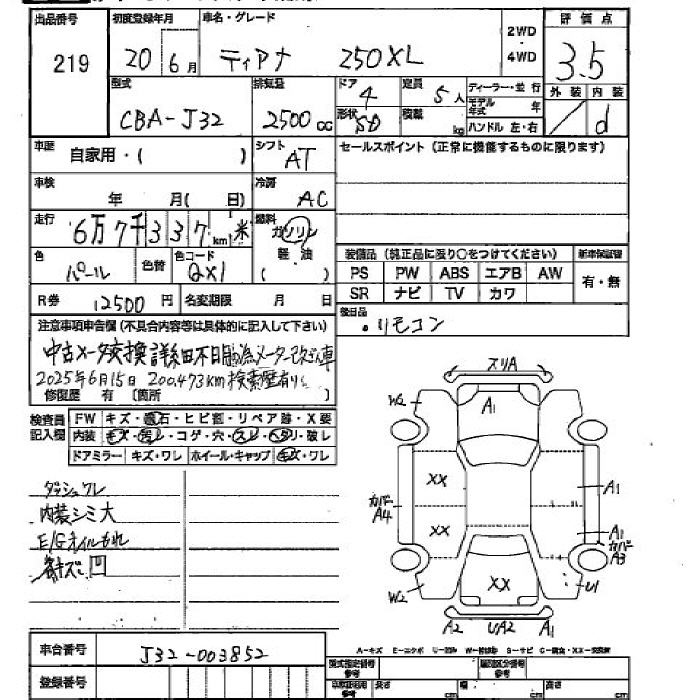 出品番号 初度登録年月 車名・グレード 2WD ・ 4WD 評価点
219 20 6月 ティアナ 250XL 3.5
型式 排気量 ドア 定員 ディーラー・並行 外装 内装
CBA-J32 2500cc 4 5人 モデル年式 年 d
形状 SD 積載 kg ハンドル 左・右
車歴 自家用・( ) シフト AT セールスポイント (正常に機能するものに限ります)
車検 年 月( 日) 冷房 AC
走行 6万7千337km 米 燃料 ガソリン
色 パール 色替 色コード QX1 軽油 ( )
装備品 (純正品に限り○をつけてください) 新車保証書
PS PW ABS エアB AW 有・無
SR ナビ TV カワ
R券 12500円 名変期限 月 日 後日品 リモコン
注意事項申告欄 (不具合内容等は具体的に記入して下さい)
中古メーター交換 詳細不日明の為メーター改ざん車
2025年6月15日 200,473km検索歴有り
修復歴 有 〔箇所
検査員記入欄 FW キズ・飛石・ヒビ割・リペア跡・X要
内装 キズ・汚レ・コゲ・穴・スレ・ヘタリ・破レ
ドアミラー キズ・ワレ ホイール・キャップ キズ・ワレ
ダッシュワレ
内装シミ大
E/Gオイルもれ
スリA
W2 A1
XX A1
カバー A4
XX A1 カバー A3
XX U1
W2
A2 UA2 A1
車台番号 J32-003852
A-キズ E-エクボ U-凹み W-補修跡 S-サビ C-腐食・XX-交換済
登録番号 型式指定番号 参考 類別区分番号 参考
参考 長さ cm cm 高さ cm